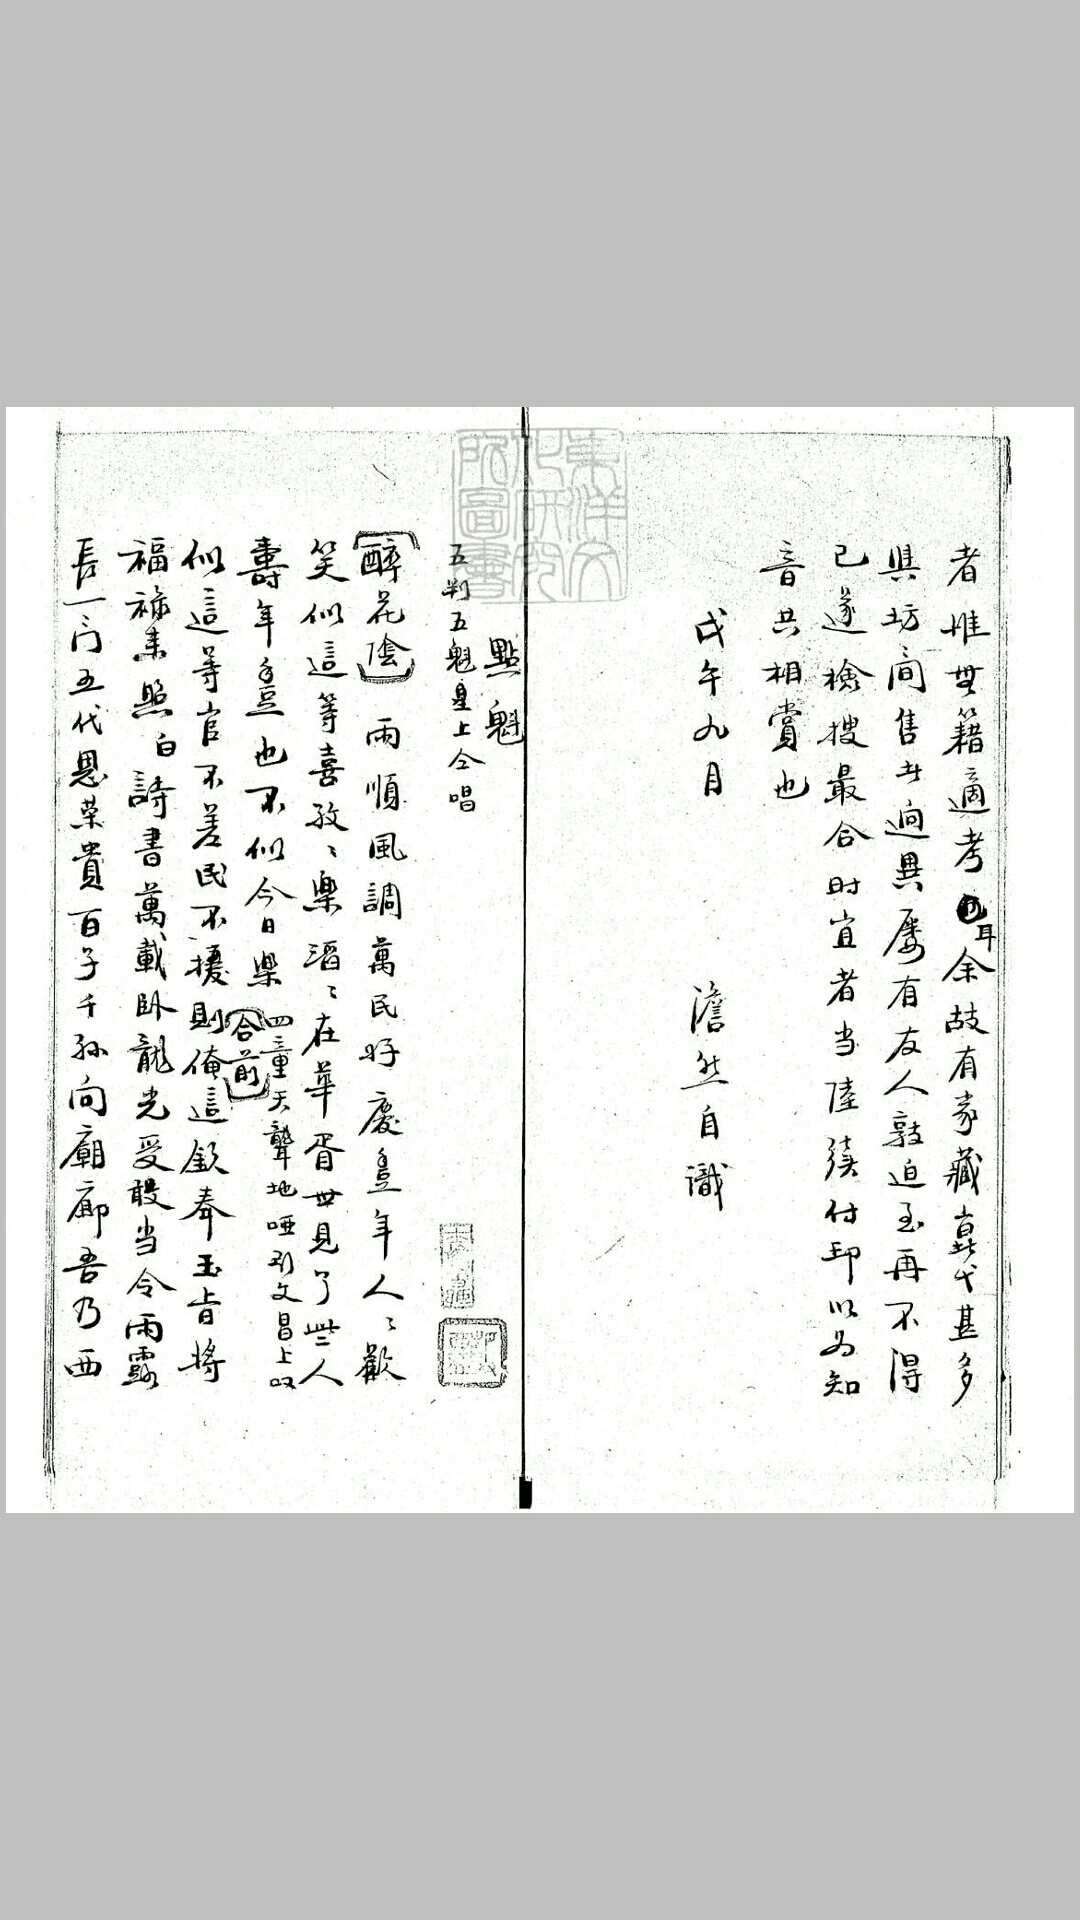 者惟無籍適考耳余故有家藏真代甚多
與坊間售者迥異屢有友人敦迫至再不得
已遂檢搜最合时宜者当陸續付印以为知
音共相賞也
戊午九月 澹然自識
東洋文化研究所圖書
點魁
五判五魁皇上仝唱
醉花陰 雨順風調萬民好慶豊年人〻歡
笑似這等喜孜〻樂滔〻在華胥世見了些人
壽年豊也不似今日樂 合前 四童天聾地啞引文昌上
似這等官不差民不擾則俺這欽奉玉旨將
福祿来照 白 詩書萬載卧龍光受敢当今雨露
長一门五代恩荣貴百子千孙向廟廊吾乃西